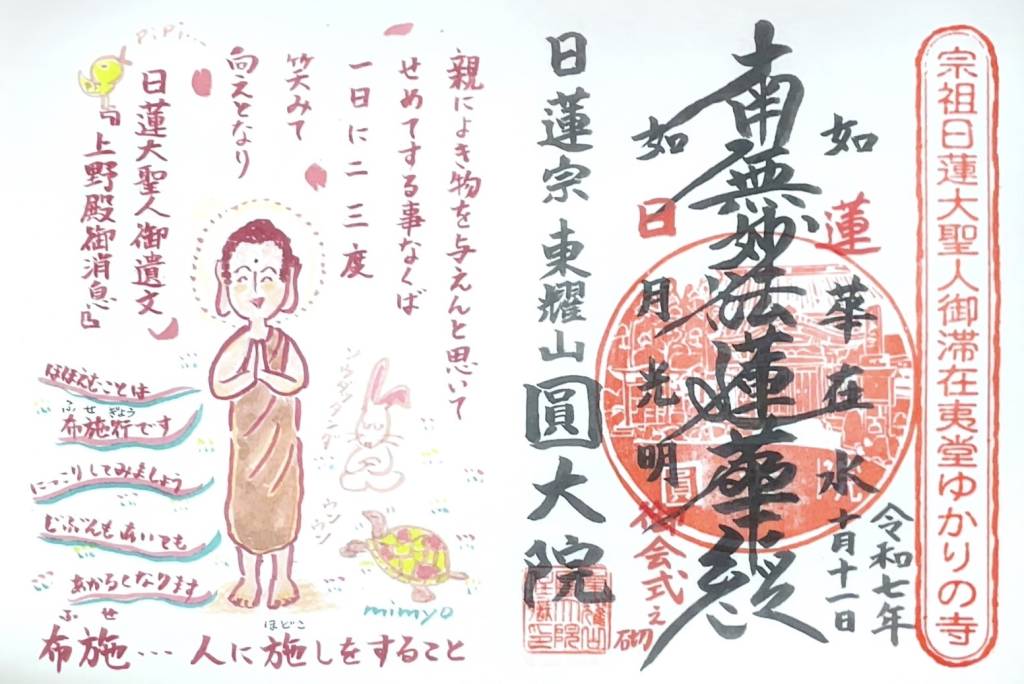 宗祖日蓮大聖人御滞在夷堂ゆかりの寺
令和七年
十月十一日
如蓮華在水
南無妙法蓮華経
如日月光明
御会式之砌
日蓮宗 東耀山 圓大院
親によき物を与えんと思いて
せめてする事なくば
一日に二三度
笑みて
向えとなり
日蓮大聖人御遺文
『上野殿御消息』
PiPi...
ほほえむことは
ふせぎょう
布施行です
にっこりしてみましょう
じぶんもあいても
あかるくなります
ウンウン
mimyo
ふせ ほどこ
布施… 人に施しをすること